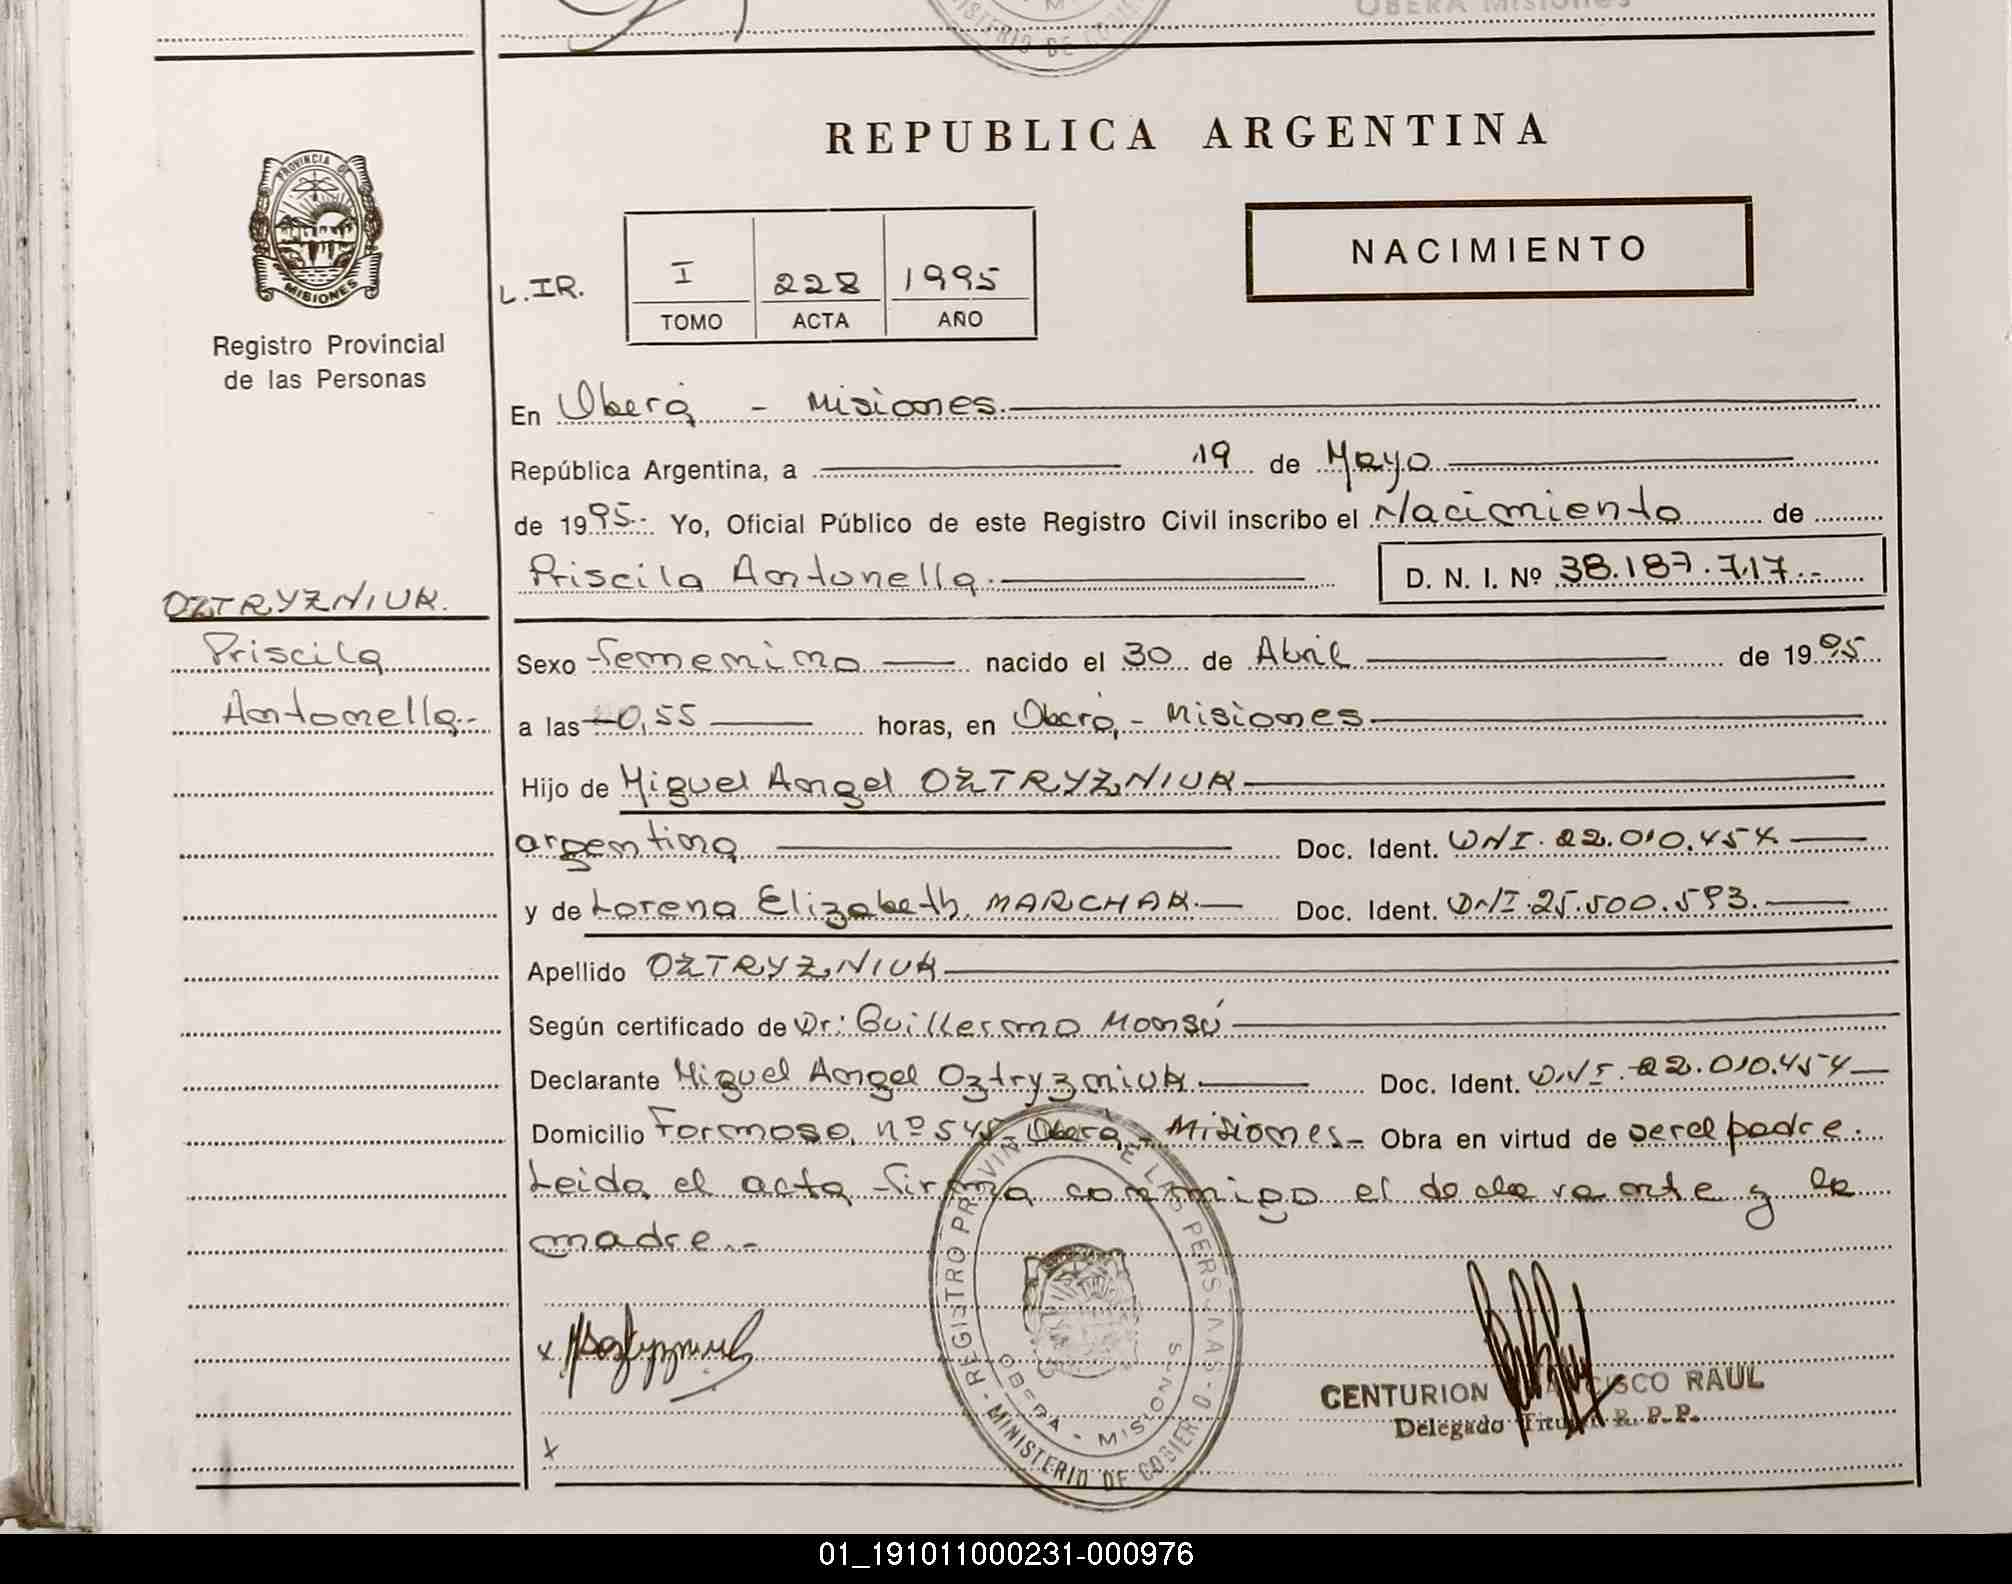 OBERA Misiones
MINISTERIO DE GO
REPUBLICA ARGENTINA
PROVINCIA DE
MISIONES
Registro Provincial
de las Personas
NACIMIENTO
L.IR.
I 228 1995
TOMO ACTA AÑO
En Oberá - Misiones.
República Argentina, a 19 de Mayo
de 1995.- Yo, Oficial Público de este Registro Civil inscribo el Nacimiento de
Priscila Antonella.- D. N. I. Nº 38.187.717.-
OZTRYZNIUK.
Priscila
Antonella.-
Sexo femenino nacido el 30 de Abril de 1995
a las 0,55 horas, en Oberá,- Misiones
Hijo de Miguel Angel OZTRYZNIUK
argentina Doc. Ident. DNI. 22.010.454
y de Lorena Elizabeth MARCHAK.- Doc. Ident. DNI.25.500.593.
Apellido OZTRYZNIUK
Según certificado de Dr: Guillermo Monsú
Declarante Miguel Angel Oztryzniuk. Doc. Ident. DNI. 22.010.454
Domicilio Formosa nº 545- Oberá - Misiones- Obra en virtud de ser el padre.
Leida el acta firma conmigo el declarante y la
madre.-
REGISTRO PROVINCIAL DE LAS PERSONAS
OBERA - MISIONES
MINISTERIO DE GOBIERNO
x
CENTURION FRANCISCO RAUL
Delegado Titular R. P. P.
x
01_191011000231-000976